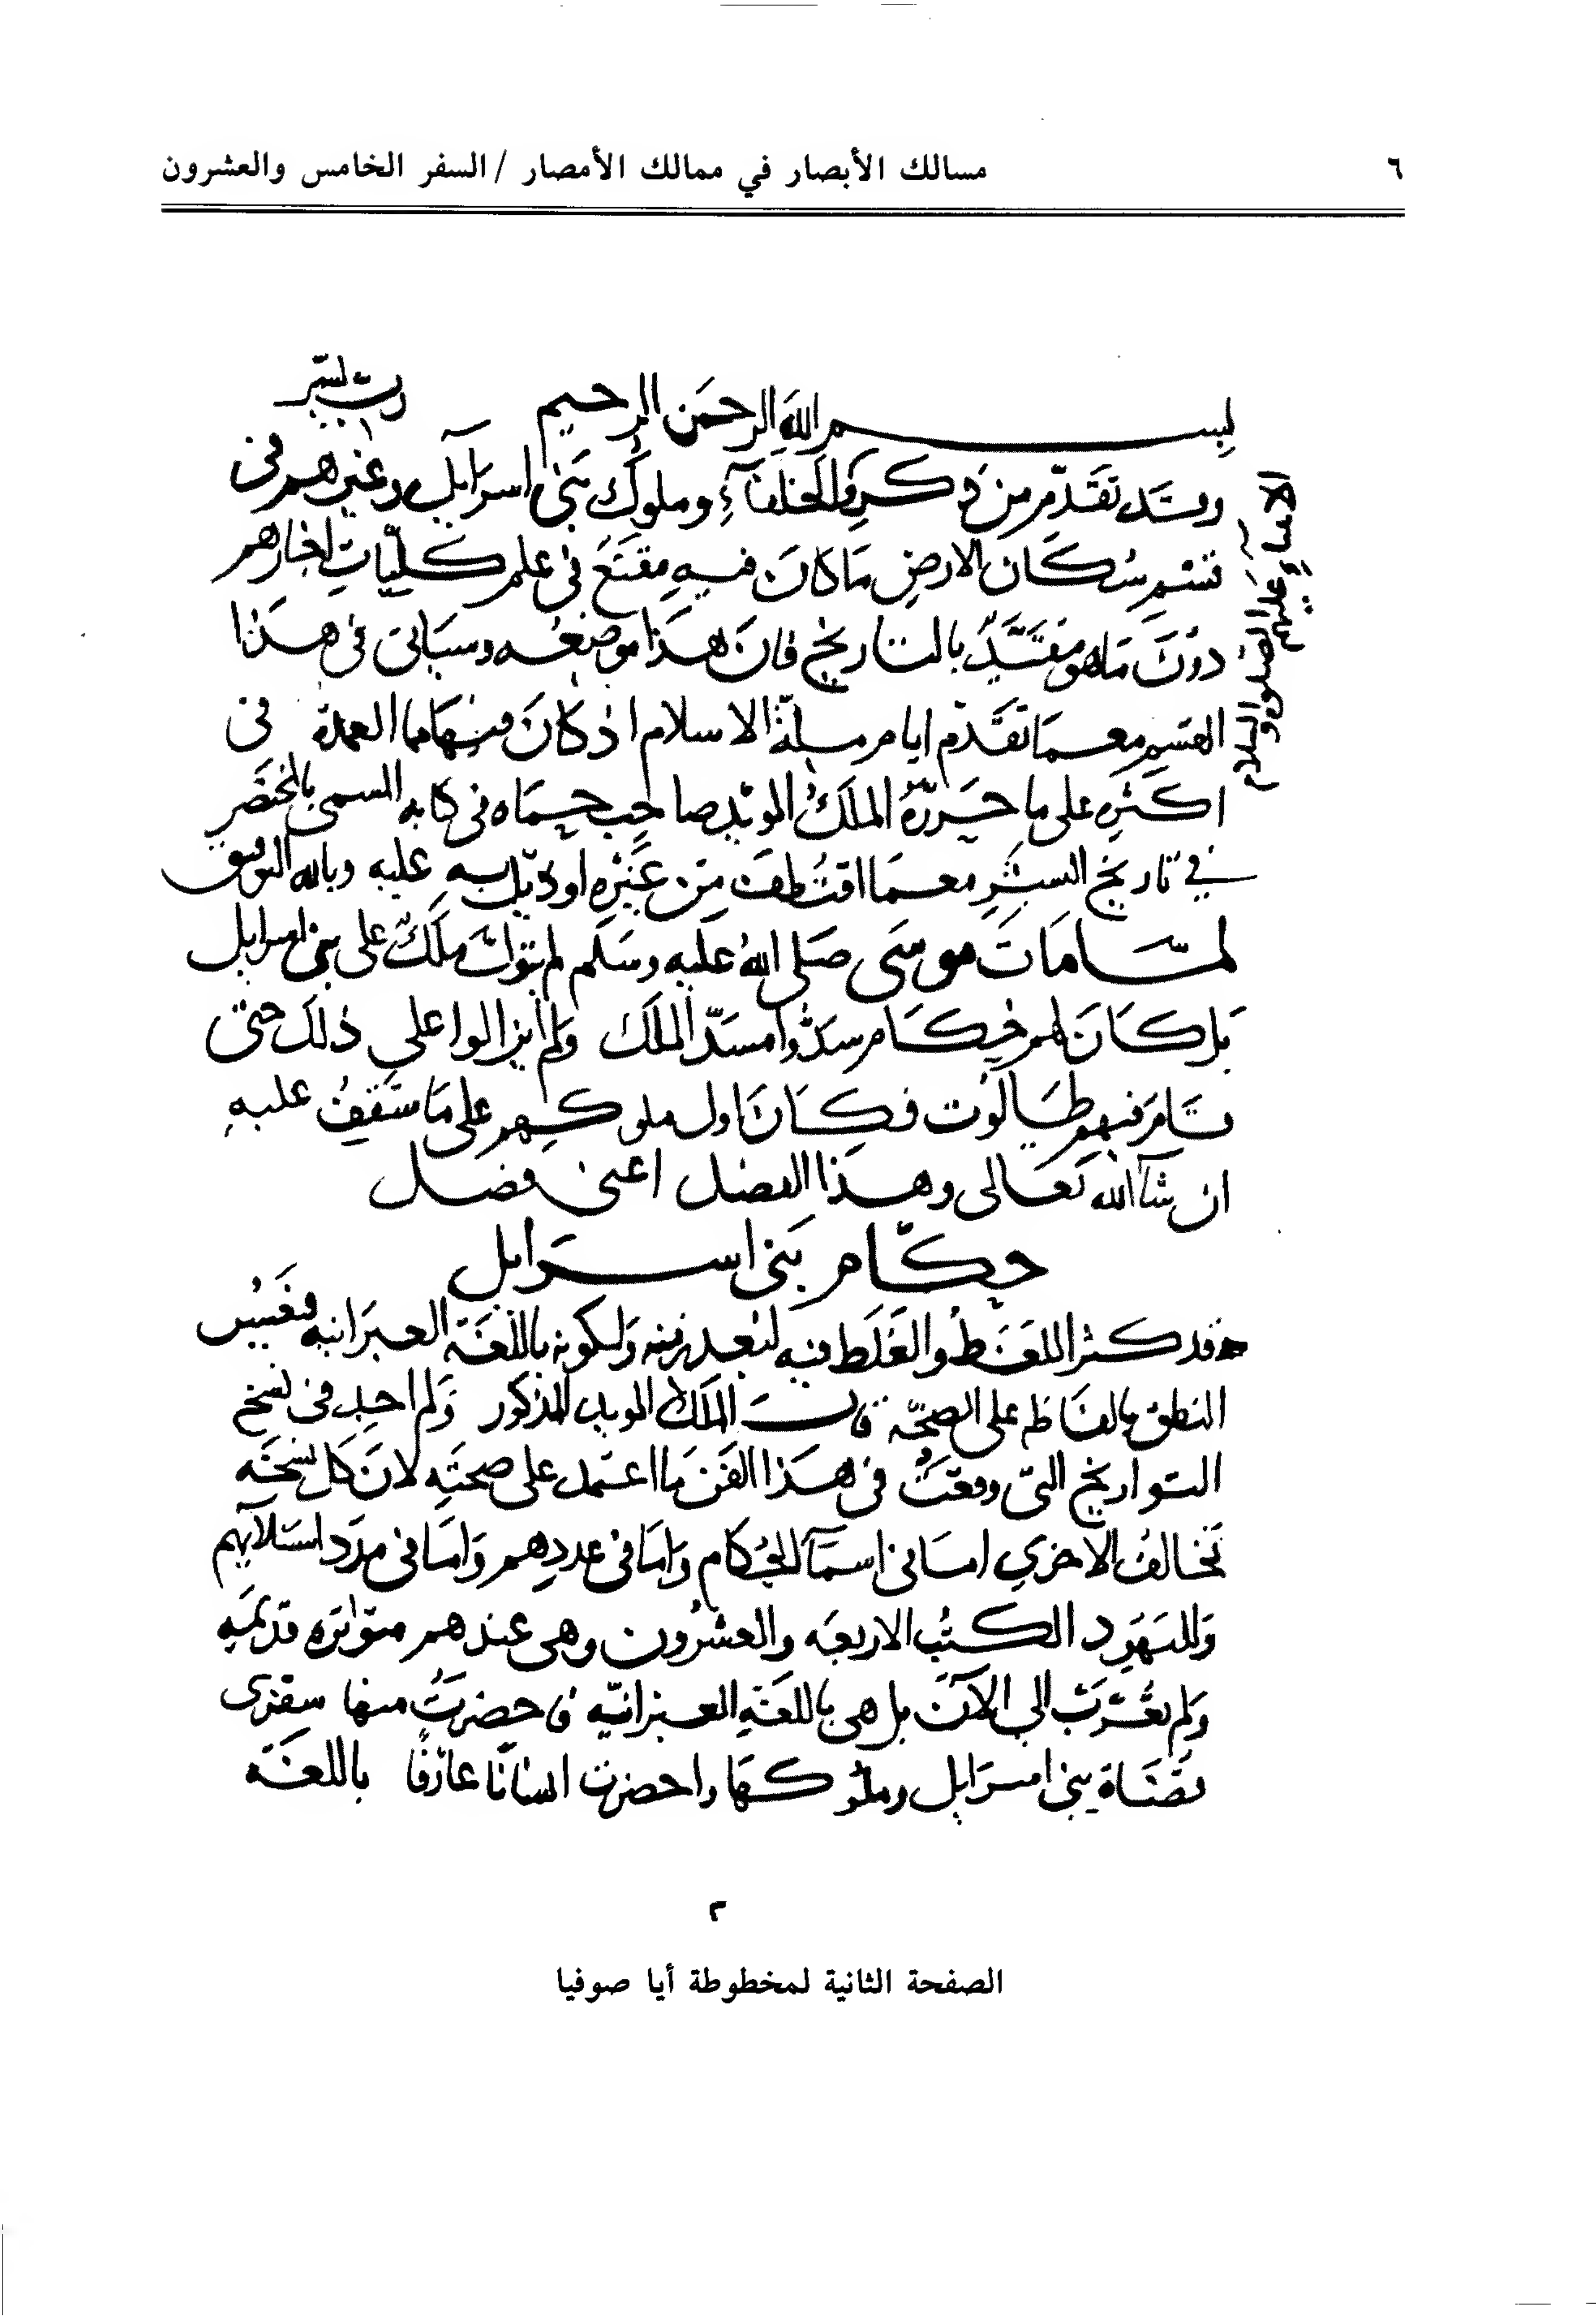 ٦
مسالك الأبصار في ممالك الأمصار / السفر الخامس والعشرون
رب يسر
بسم الله الرحمن الرحيم
وقد تقدم من ذكر والخلفاء وملوك بنى اسرايل وغيرهم فى
الانبياء عليهم الصلوة والسلام
قسم سكان الارض ما كان فيه مقنع فى علم كليات اخبارهم
دون ما هو مقيد بالتاريخ فان هذا موضعه وسياتى فى هذا
القسم معما تقدم ايام ملة الاسلام اذ كان منها ما العمدة فى
اكثره على ما حرره الملك المويد صاحب حماه فى كتابه المسمى بالمختصر
فى تاريخ البشر معما اقتطف من غيره او ذيل به عليه وبالله التوفيق
لما مات موسى صلى الله عليه وسلم لم يتول ملك على بنى اسرايل
بل كان لهم حكام سدوا مسد الملك ولم يزالوا على ذلك حتى
قام فيهم طالوت فكان اول ملوكهم على ما ستقف عليه
ان شاء الله تعالى وهذا الفصل اعنى فصل
حكام بنى اسرايل
قد كثر اللغط والغلط فيه لبعد زمنه ولكونه باللغة العبرانيه فتعسر
النطق بالفاظه على الصحة قال الملك المويد المذكور ولم اجد فى نسخ
التواريخ التى وقعت فى هذا الفن ما اعتمد على صحته لان كل نسخه
تخالف الاخرى اما فى اسماء الحكام واما فى عددهم واما فى مدد استيلايهم
ولليهود الكتب الاربعه والعشرون وهى عندهم متواتره قديمه
ولم تعرب الى الآن بل هى باللغة العبرانيه فاحضرت منها سفرى
قضاة بنى اسرايل وملوكها واحضرت انسانا عارفا باللغة
٢
الصفحة الثانية لمخطوطة أيا صوفيا